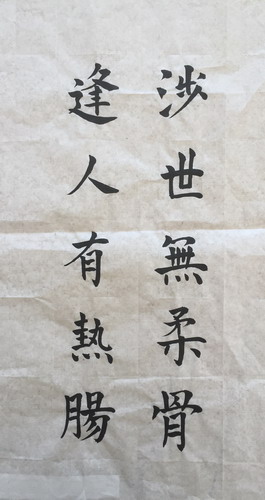 涉世無柔骨
逢人有熱腸